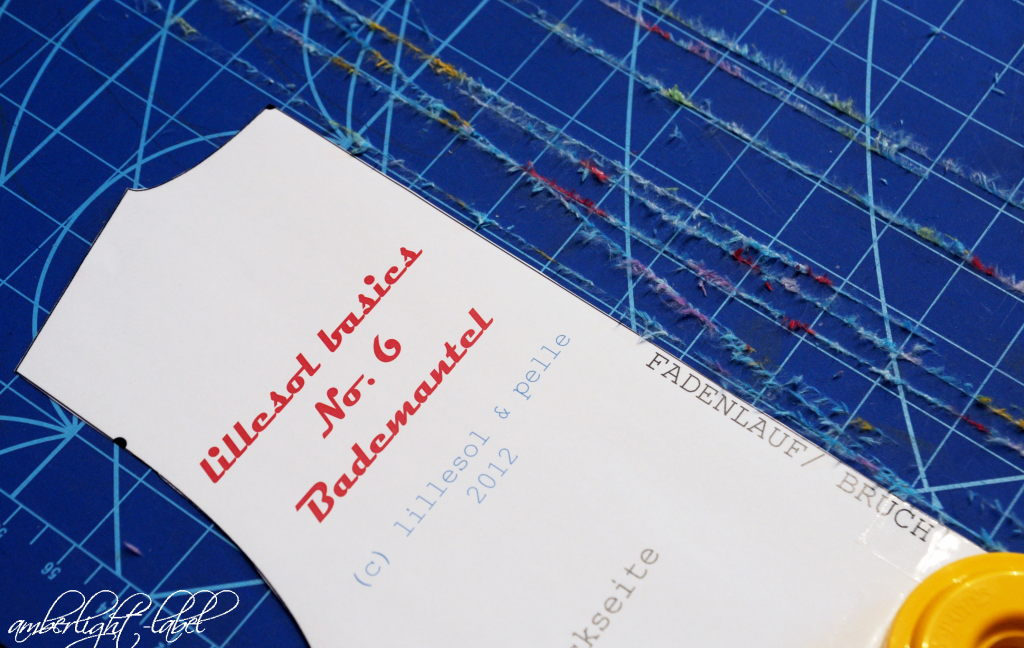 lillesol basics
No. 6
Bademantel
(c) lillesol & pelle
2012
FADENLAUF/ BRUCH
kseite
56
amberlight-label